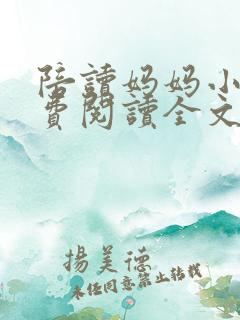 陪讀媽媽小
費閱讀全文
揚美德
未經同意禁止轉載